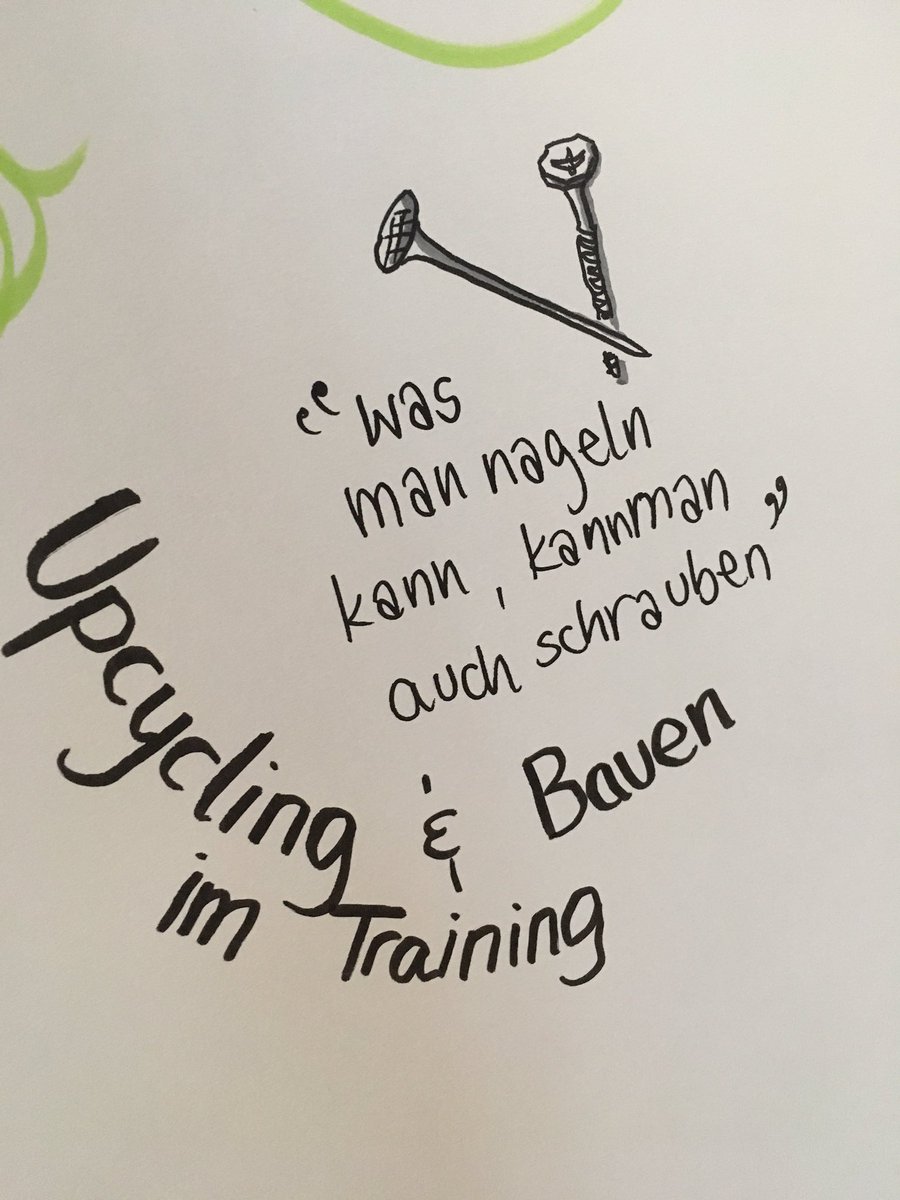 “was
man nageln
kann, kannman
auch schrauben”
Upcycling & Bauen
im Training